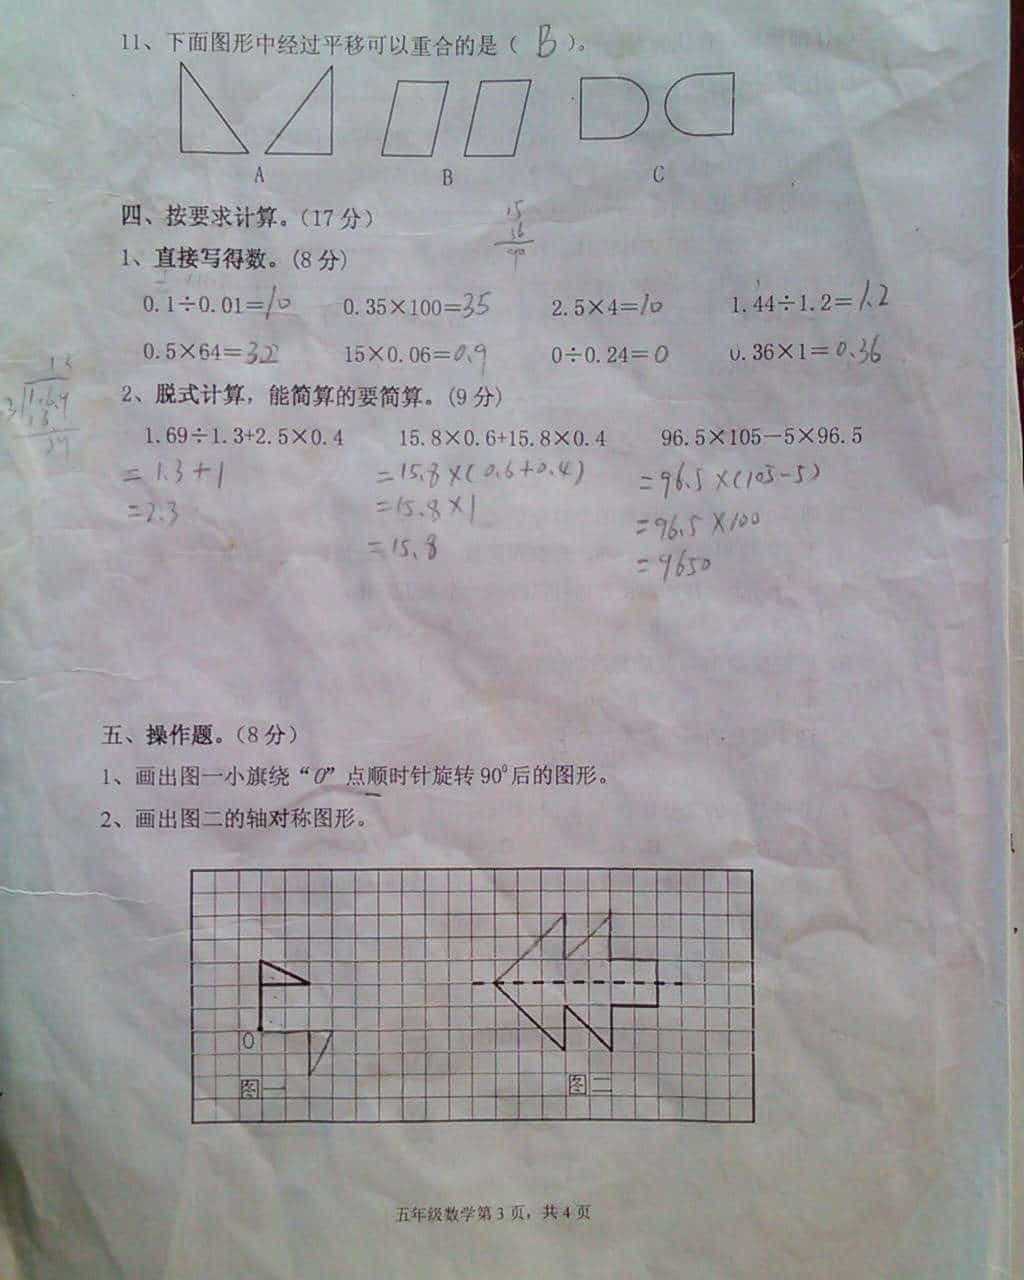 11、下面图形中经过平移可以重合的是（ B ）。
A B C
四、按要求计算。（17 分）
15
36
90
1、直接写得数。（8 分）
0.1÷0.01=10 0.35×100=35 2.5×4=10 1.44÷1.2=1.2
0.5×64=32 15×0.06=0.9 0÷0.24=0 0.36×1=0.36
2、脱式计算，能简算的要简算。（9 分）
1.69÷1.3+2.5×0.4 15.8×0.6+15.8×0.4 96.5×105－5×96.5
=1.3+1 =15.8×(0.6+0.4) =96.5×(105-5)
=2.3 =15.8×1 =96.5×100
=15.8 =9650
五、操作题。（8 分）
1、画出图一小旗绕“O”点顺时针旋转 90⁰ 后的图形。
2、画出图二的轴对称图形。
O
图一 图二
五年级数学第 3 页，共 4 页